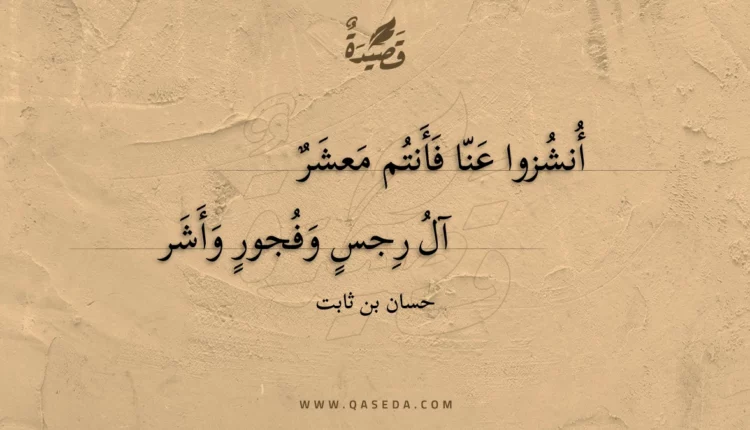 قَصِيدَةٌ
أُنشُزوا عَنّا فَأَنتُم مَعشَرٌ
آلُ رِجسٍ وَفُجورٍ وَأَشَر
حسان بن ثابت
WWW.QASEDA.COM